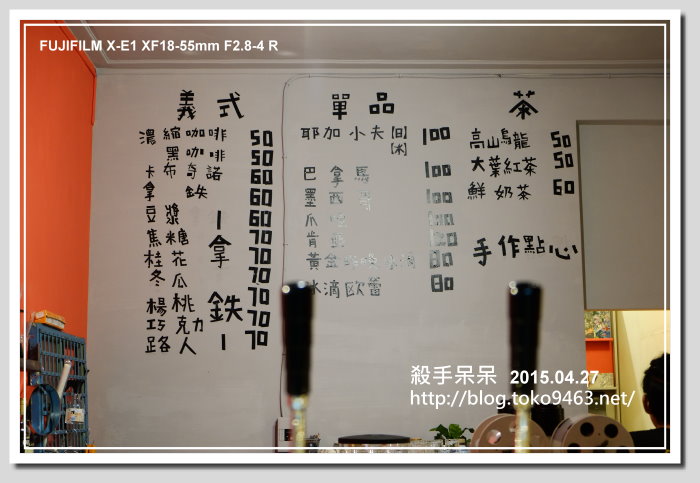 FUJIFILM X-E1 XF18-55mm F2.8-4 R
義式
濃縮咖啡 50
黑咖啡 50
卡布奇諾 60
拿鉄 60
豆漿 60
焦糖 70
桂花 70
冬瓜 70
楊桃 70
巧克力 70
路人 70
ー拿鉄ー
單品
耶加小夫 [日] 100
[水]
巴拿馬 100
墨西哥 100
瓜 100
肯
黃金 80
冰滴歐蕾 80
茶
高山烏龍 50
大葉紅茶 50
鮮奶茶 60
手作點心
殺手呆呆 2015.04.27
http://blog.toko9463.net/